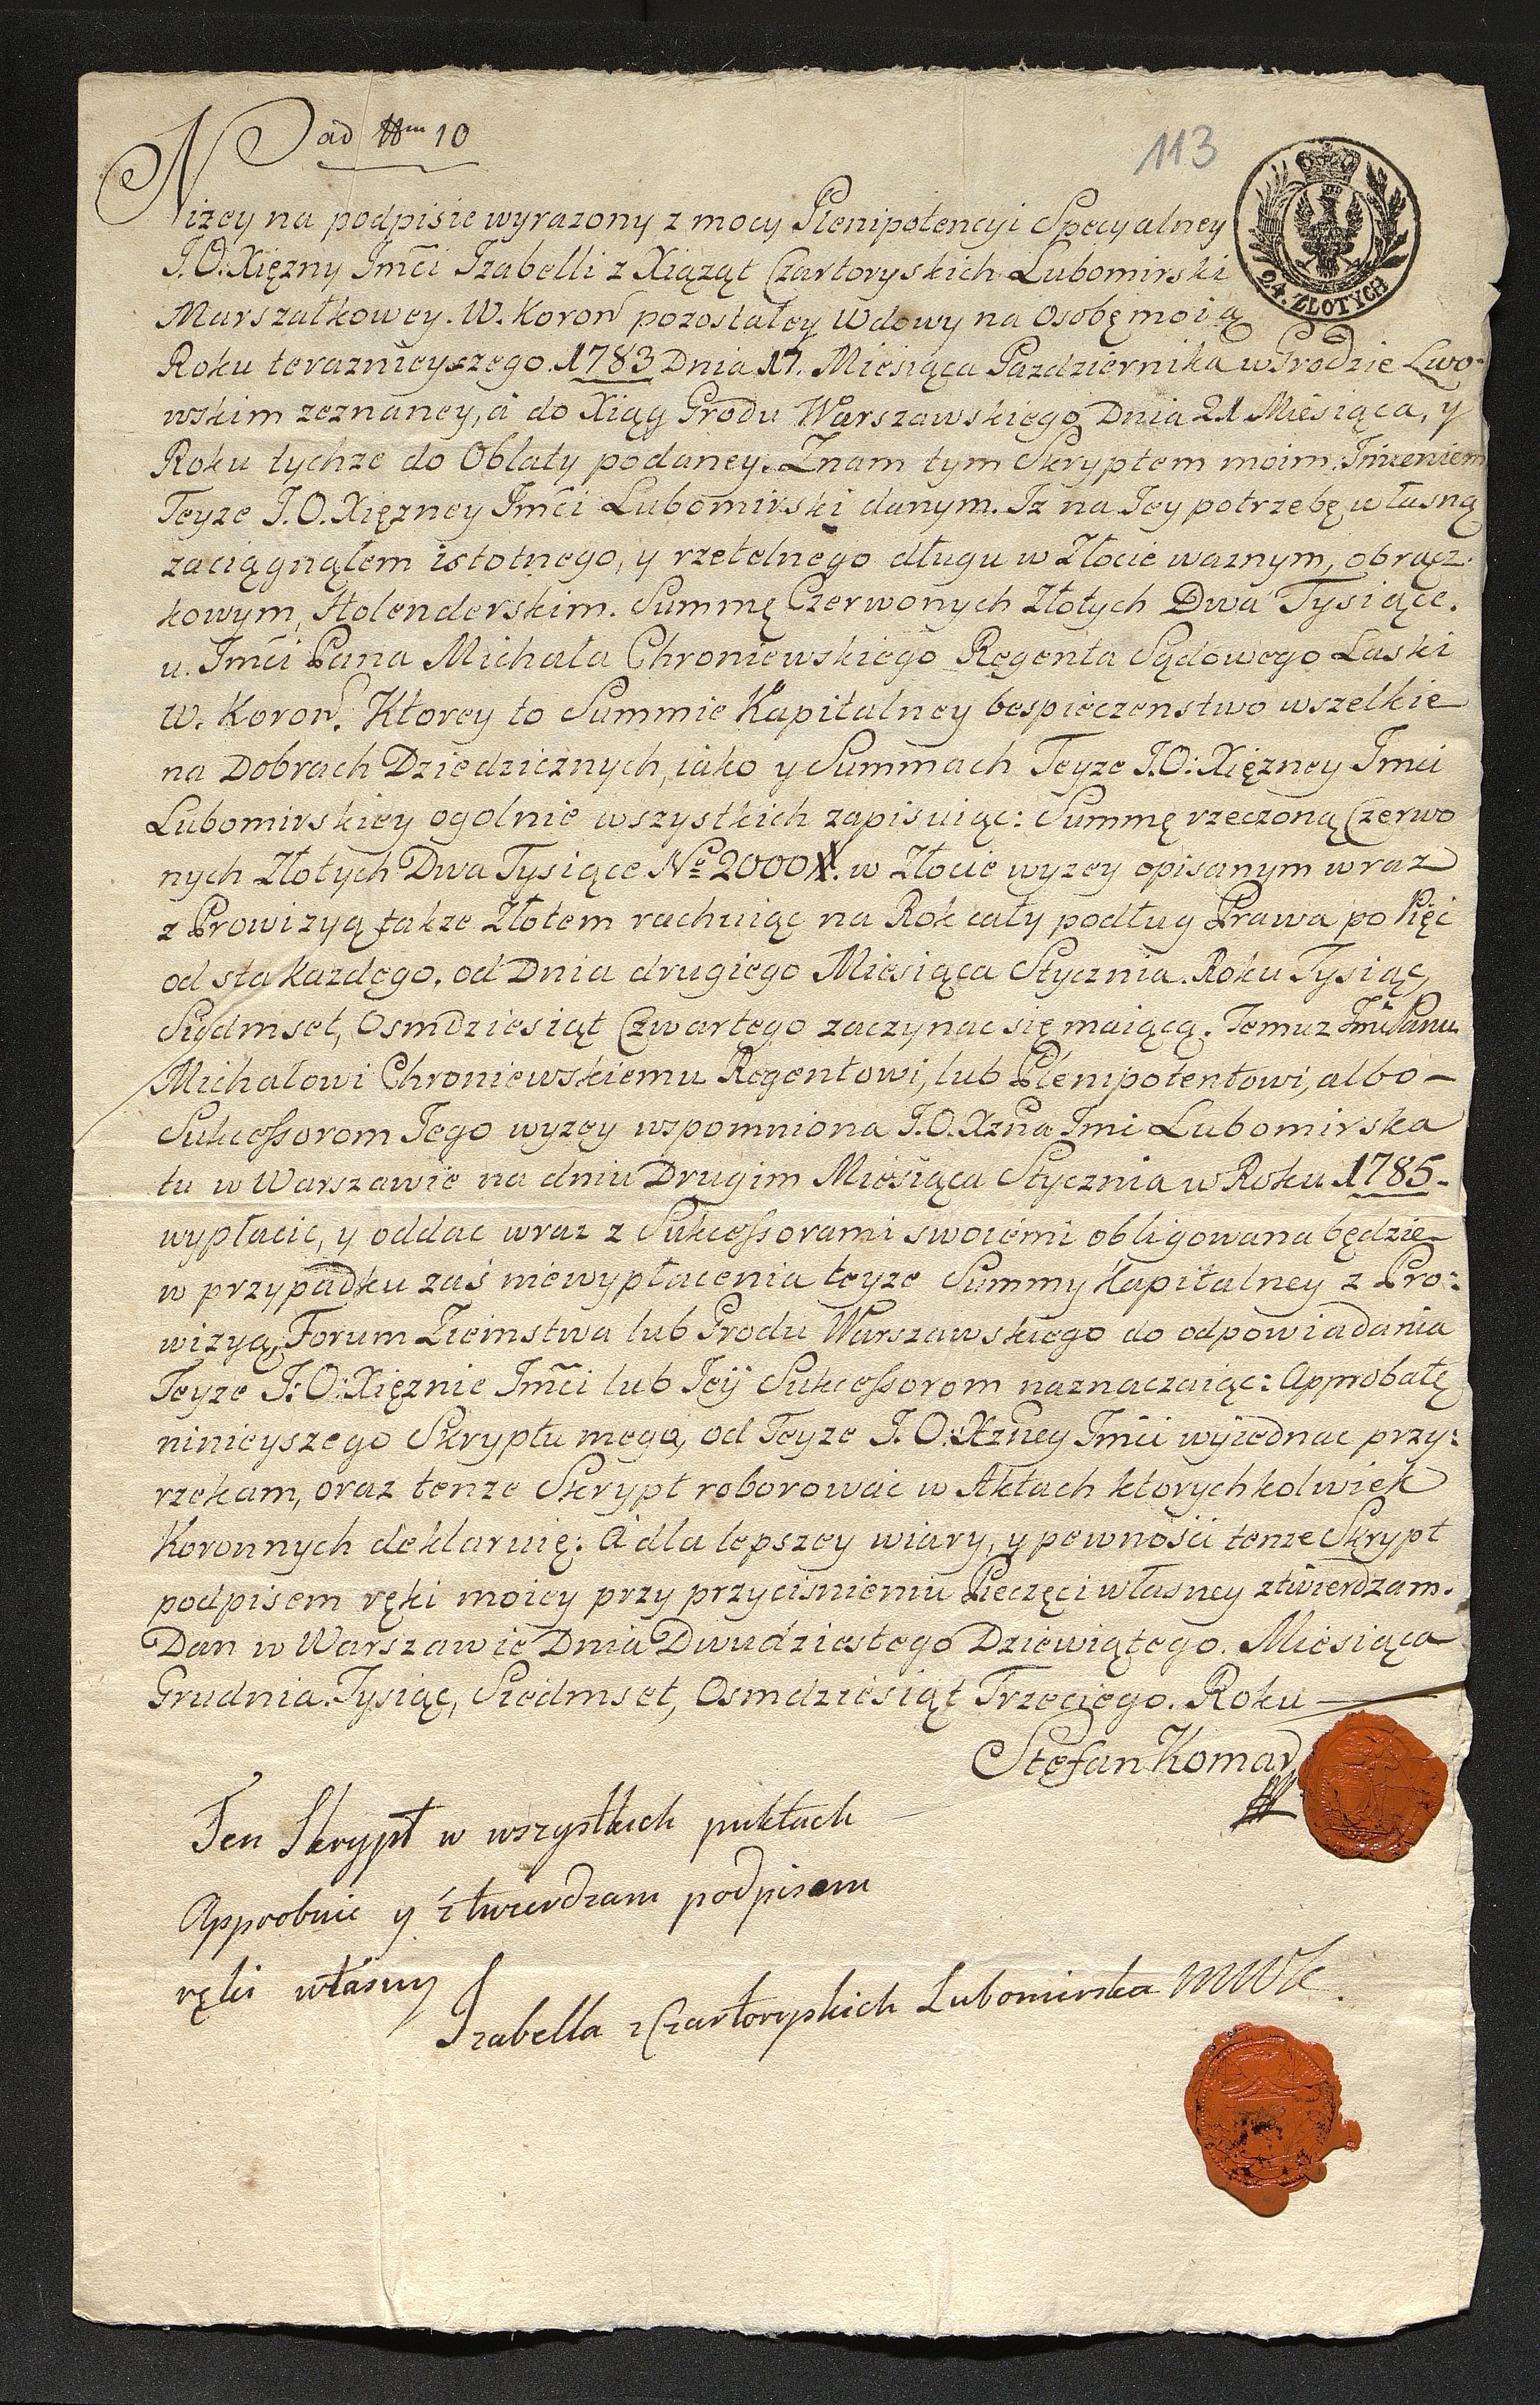 ad 10
113
24. ZŁOTYCH
Nizey na podpisie wyrazony z mocy Plenipotencyi Specyalney
J. O: Xięzny Jmci Izabelli z Xiąząt Czartoryskich Lubomirski
Marszałkowey. W. Koron pozostałey Wdowy na Osobę moią
Roku teraznieyszego. 1783 Dnia 17. Miesiąca Pazdziernika w Grodzie Lwo=
wskim zeznaney, á do Xiąg Grodu Warszawskiego Dnia 21 Miesiąca, y
Roku tychze do Oblaty podaney. Znam tym Skryptem moim Imieniem
Teyze J. O. Xięzney Jmci Lubomirski danym. Iz na Jey potrzebę własną
zaciągnąłem istotnego, y rzetelnego długu w Złocie waznym, obrącz=
kowym, Holenderskim. Summę Czerwonych Złotych Dwa Tysiące.
u. Jmci Pana Michała Chroniewskiego Regenta Sądowego Laski
W. Koron. Ktorey to Summie Kapitalney bespieczenstwo wszelkie
na Dobrach Dziedzicznych, iako y Summach Teyze J. O: Xięzney Jmci
Lubomirskiey ogolnie wszystkich zapisuiąc: Summę rzeczoną Czerwo
nych Złotych Dwa Tysiące No 2000 X. w Złocie wyzey opisanym wraz
z Prowizyą takze Złotem rachuiąc na Rok cały podług Prawa po Pięć
od sta kazdego. od Dnia drugiego Miesiąca Stycznia. Roku Tysiąc,
Siedmset, Osmdziesiąt Czwartego zaczynac się maiącą. Temuz Jmci Panu
Michałowi Chroniewskiemu Regentowi, lub Plenipotentowi, albo –
Sukcessorom Jego wyzey wspomniona J. O. Xzna Jmci Lubomirska
tu w Warszawie na dniu Drugim Miesiąca Stycznia w Roku 1785 –
wypłacic, y oddac wraz z Sukcessorami swoiemi obligowana będzie
w przypadku zaś niewypłacenia teyze Summy Kapitalney z Pro=
wizyą, Forum Ziemstwa lub Grodu Warszawskiego do odpowiadania
Teyze J: O: Xięznie Jmci lub Jeÿ Sukcessorom naznaczaiąc: Approbatę
ninieyszego Skryptu mego, od Teyze J. O: Xzney Jmci wyiednac przy=
rzekam, oraz tenze Skrypt roborować w Aktach ktorychkolwiek
Koronnych deklaruię: A dla lepszey wiary, y pewności tenze Skrypt
podpisem ręki moiey przy przycisnieniu Pieczęci własney ztwierdzam.
Dan w Warszawie Dnia Dwudziestego Dziewiątego. Miesiąca
Grudnia. Tysiąc, Siedmset, Osmdziesiąt Trzeciego. Roku —
Stefan Komar
Ten Skrypt w wszystkich puktach
Approbuie y ztwierdzam podpisem
ręki własny
Izabella z Czartoryskich Lubomirska MWK.